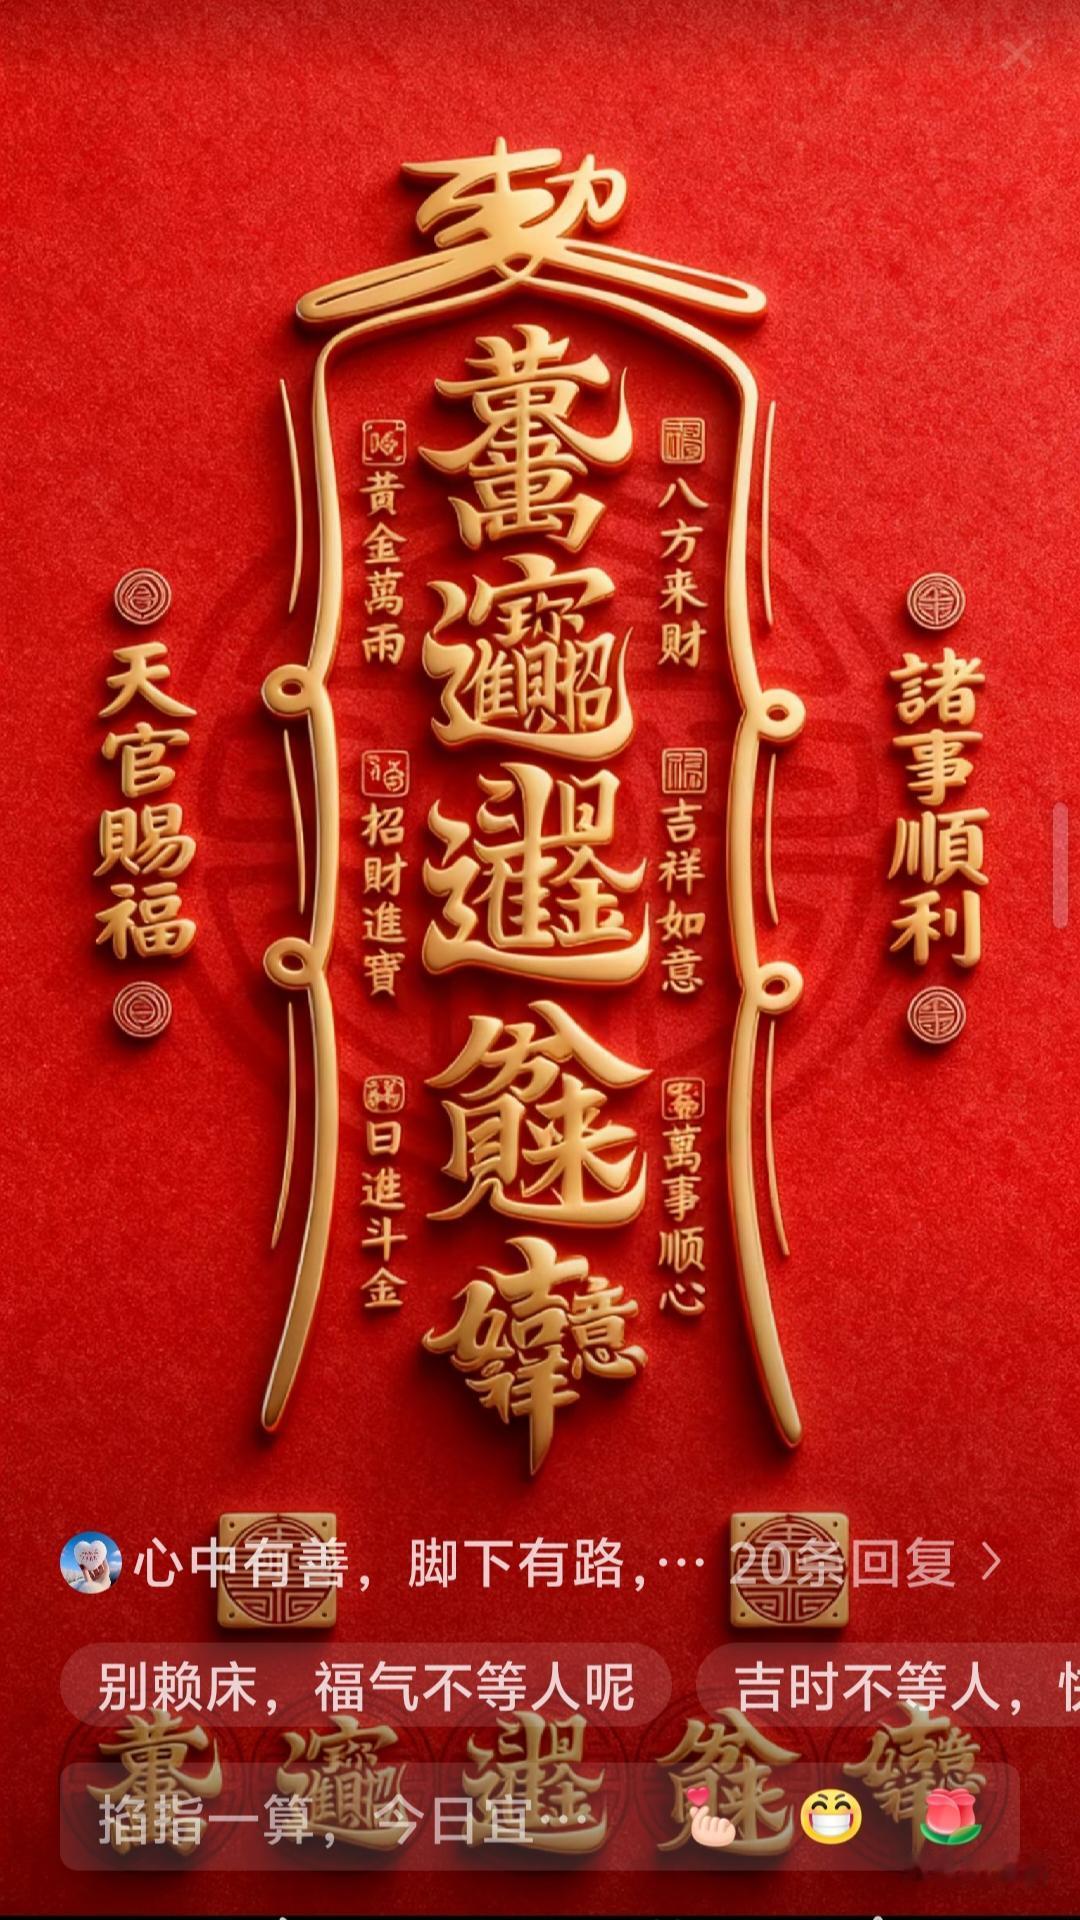 八方来財
黃金萬兩
吉祥如意
招財進寶
萬事顺心
日進斗金
諸事順利
天官賜福
心中有善，脚下有路，… 20条回复
别赖床，福气不等人呢
吉时不等人，
掐指一算，今日宜…